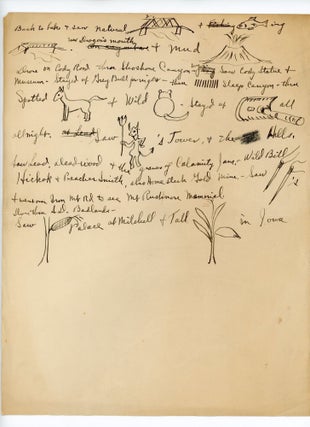 Back to lake & saw natural & ing
or Dragon's mouth & mud
drove on Cody Road thru Shoshone Canyon - Saw Cody Statue &
Museum - Stayed at Grey Bull for night - thru Canyon - thru
Spotted & Wild - Stayed at all
allnight. Saw 's Tower, & the Hills
Saw Lead, deadwood & the graves of Calamity Jane - Wild Bill
Hickok & Preacher Smith, also Home stake Gold mine - Saw 's
& ran on Iron Mt Rd to see Mt Rushmore Memorial
thru S.D. Badlands -
Saw Palace at Mitchell & Tall in Iowa